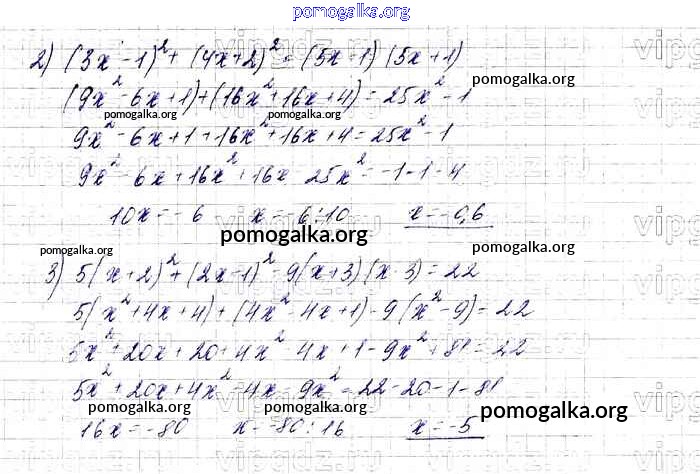 pomogalka.org
2) (3x - 1)² + (4x + 2)² = (5x - 1)(5x + 1)
pomogalka.org
(9x² - 6x + 1) + (16x² + 16x + 4) = 25x² - 1
pomogalka.org pomogalka.org
9x² - 6x + 1 + 16x² + 16x + 4 = 25x² - 1
9x² - 6x + 16x² + 16x - 25x² = -1 - 1 - 4
10x = -6 x = -6 : 10 x = -0,6
pomogalka.org pomogalka.org
pomogalka.org
3) 5(x + 2)² + (2x - 1)² - 9(x + 3)(x - 3) = 22
5(x² + 4x + 4) + (4x² - 4x + 1) - 9(x² - 9) = 22
5x² + 20x + 20 + 4x² - 4x + 1 - 9x² + 81 = 22
5x² + 20x + 4x² - 4x - 9x² = 22 - 20 - 1 - 81
pomogalka.org pomogalka.org pomogalka.org
16x = -80 x = -80 : 16 x = -5